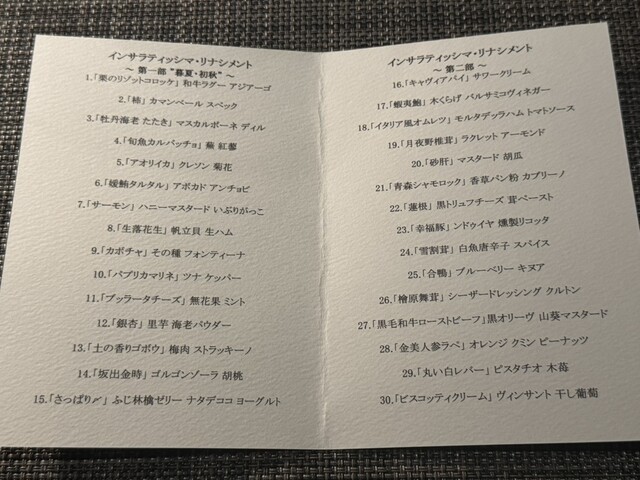 インサラティッシマ・リナシメント
～ 第一部 "暮夏・初秋" ～
1.「栗のリゾットコロッケ」 和牛ラグー アジアーゴ
2.「柿」 カマンベール スペック
3.「牡丹海老 たたき」 マスカルポーネ ディル
4.「旬魚カルパッチョ」 蕪 紅蓼
5.「アオリイカ」 クレソン 菊花
6.「鮪タルタル」 アボカド アンチョビ
7.「サーモン」 ハニーマスタード いぶりがっこ
8.「生落花生」 帆立貝 生ハム
9.「カボチャ」 その種 フォンティーナ
10.「パプリカマリネ」 ツナ ケッパー
11.「ブッラータチーズ」 無花果 ミント
12.「銀杏」 里芋 海老パウダー
13.「土の香りゴボウ」 梅肉 ストラッキーノ
14.「坂出金時」 ゴルゴンゾーラ 胡桃
15.「さっぱり〆」 ふじ林檎ゼリー ナタデココ ヨーグルト
インサラティッシマ・リナシメント
～ 第二部 ～
16.「キャヴィアパイ」 サワークリーム
17.「蝦夷鮑」 木くらげ バルサミコヴィネガー
18.「イタリア風オムレツ」 モルタデッラハム トマトソース
19.「月夜野椎茸」 ラクレット アーモンド
20.「砂肝」 マスタード 胡瓜
21.「青森シャモロック」 香草パン粉 カプリーノ
22.「蓮根」 黒トリュフチーズ 茸ペースト
23.「幸福豚」 ンドゥイヤ 燻製リコッタ
24.「雪割茸」 白魚唐辛子 スパイス
25.「合鴨」 ブルーベリー キヌア
26.「檜原舞茸」 シーザードレッシング クルトン
27.「黒毛和牛ローストビーフ」 黒オリーヴ 山葵マスタード
28.「金美人参ラペ」 オレンジ クミン ピーナッツ
29.「丸い白レバー」 ピスタチオ 木苺
30.「ビスコッティクリーム」 ヴィンサント 干し葡萄